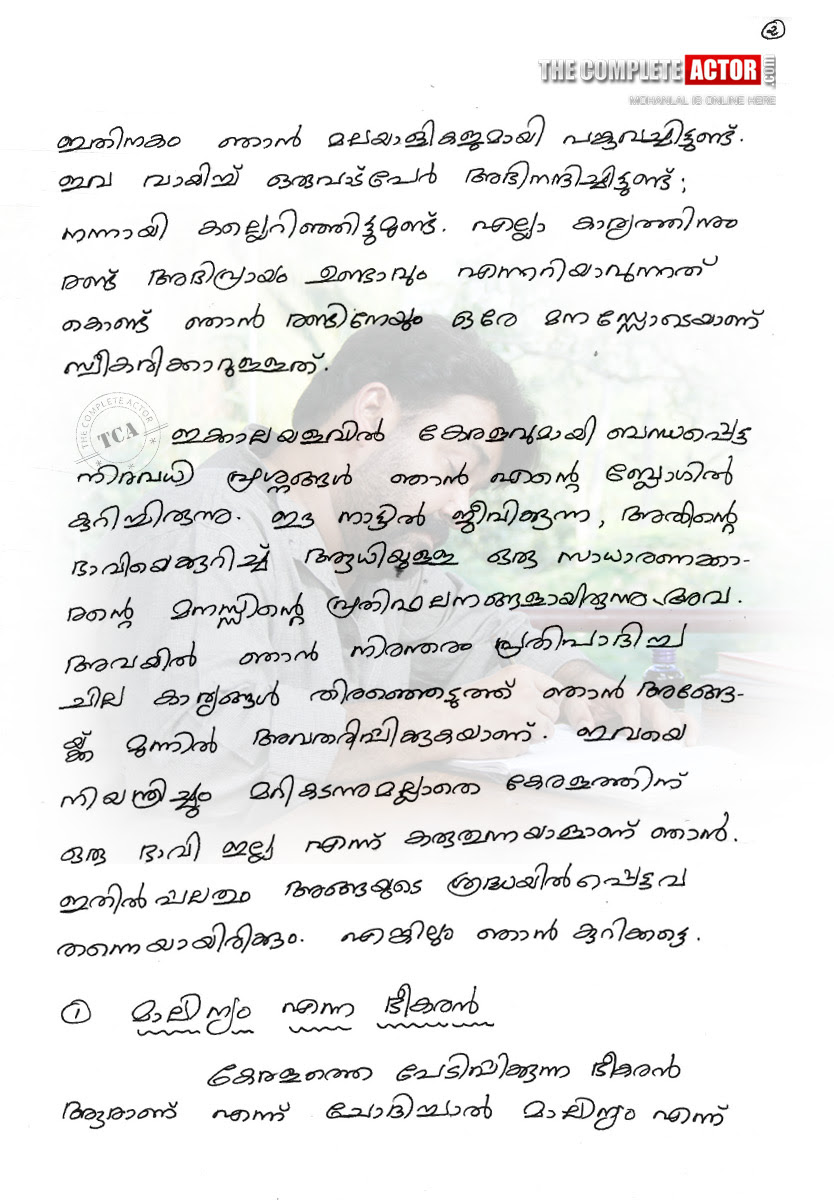 2
THE COMPLETE ACTOR .com
MOHANLAL IS ONLINE HERE
ഇതിനകം ഞാൻ മലയാളികളുമായി പങ്കുവച്ചിട്ടുണ്ട്.
ഇവ വായിച്ച് ഒരുപാട്പേർ അഭിനന്ദിച്ചിട്ടുണ്ട്;
നന്നായി കല്ലെറിഞ്ഞിട്ടുമുണ്ട്. എല്ലാ കാര്യത്തിനും
രണ്ട് അഭിപ്രായം ഉണ്ടാവും എന്നറിയാവുന്നത്
കൊണ്ട് ഞാൻ രണ്ടിനേയും ഒരേ മനസ്സോടെയാണ്
സ്വീകരിക്കാറുള്ളത്.
THE COMPLETE ACTOR
TCA
ഇക്കാലയളവിൽ കേരളവുമായി ബന്ധപ്പെട്ട
നിരവധി പ്രശ്നങ്ങൾ ഞാൻ എന്റെ ബ്ലോഗിൽ
കുറിച്ചിരുന്നു. ഈ നാട്ടിൽ ജീവിക്കുന്ന, അതിന്റെ
ഭാവിയെക്കുറിച്ച് ആധിയുള്ള ഒരു സാധാരണക്കാ-
രന്റെ മനസ്സിന്റെ പ്രതിഫലനങ്ങളായിരുന്നു അവ.
അവയിൽ ഞാൻ നിരന്തരം പ്രതിപാദിച്ച
ചില കാര്യങ്ങൾ തിരഞ്ഞെടുത്ത് ഞാൻ അങ്ങേ-
യ്ക്ക് മുന്നിൽ അവതരിപ്പിക്കുകയാണ്. ഇവയെ
നിയന്ത്രിച്ചും മറികടന്നുമല്ലാതെ കേരളത്തിന്
ഒരു ഭാവി ഇല്ല എന്ന് കരുതുന്നയാളാണ് ഞാൻ.
ഇതിൽ പലതും അങ്ങയുടെ ശ്രദ്ധയിൽ പ്പെട്ടവ
തന്നെയായിരിക്കും. എങ്കിലും ഞാൻ കുറിക്കട്ടെ.
1 മാലിന്യം എന്ന ഭീകരൻ
കേരളത്തെ പേടിപ്പിക്കുന്ന ഭീകരൻ
ആരാണ് എന്ന് ചോദിച്ചാൽ മാലിന്യം എന്ന്